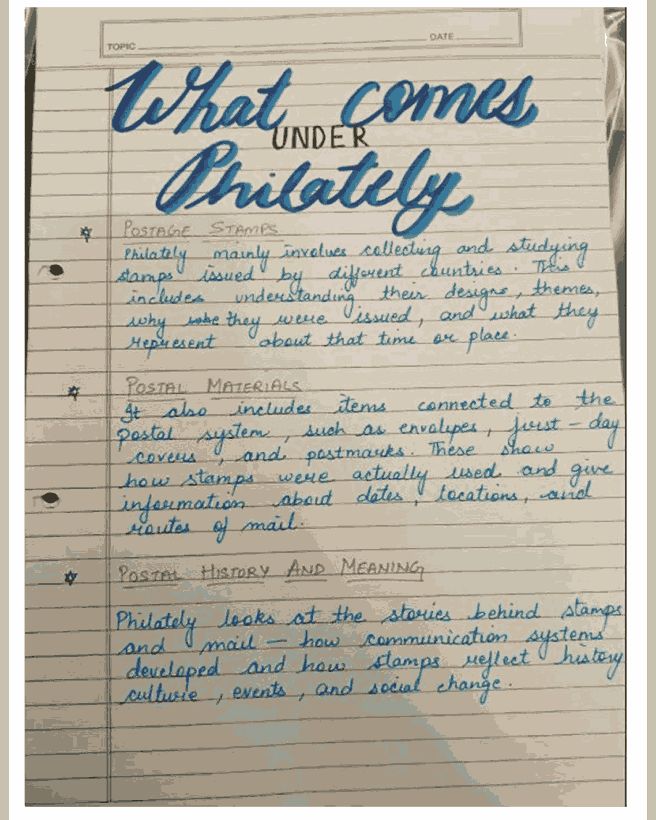 TOPIC
DATE
What comes
UNDER
Philately
POSTAGE STAMPS
Philately mainly involves collecting and studying
stamps issued by different countries. This
includes understanding their designs, themes,
why they were issued, and what they
represent about that time or place.
POSTAL MATERIALS
It also includes items connected to the
postal system, such as envelopes, first-day
covers, and postmarks. These show
how stamps were actually used and give
information about dates, locations, and
routes of mail.
POSTAL HISTORY AND MEANING
Philately looks at the stories behind stamps
and mail — how communication systems
developed and how stamps reflect history
culture, events, and social change.